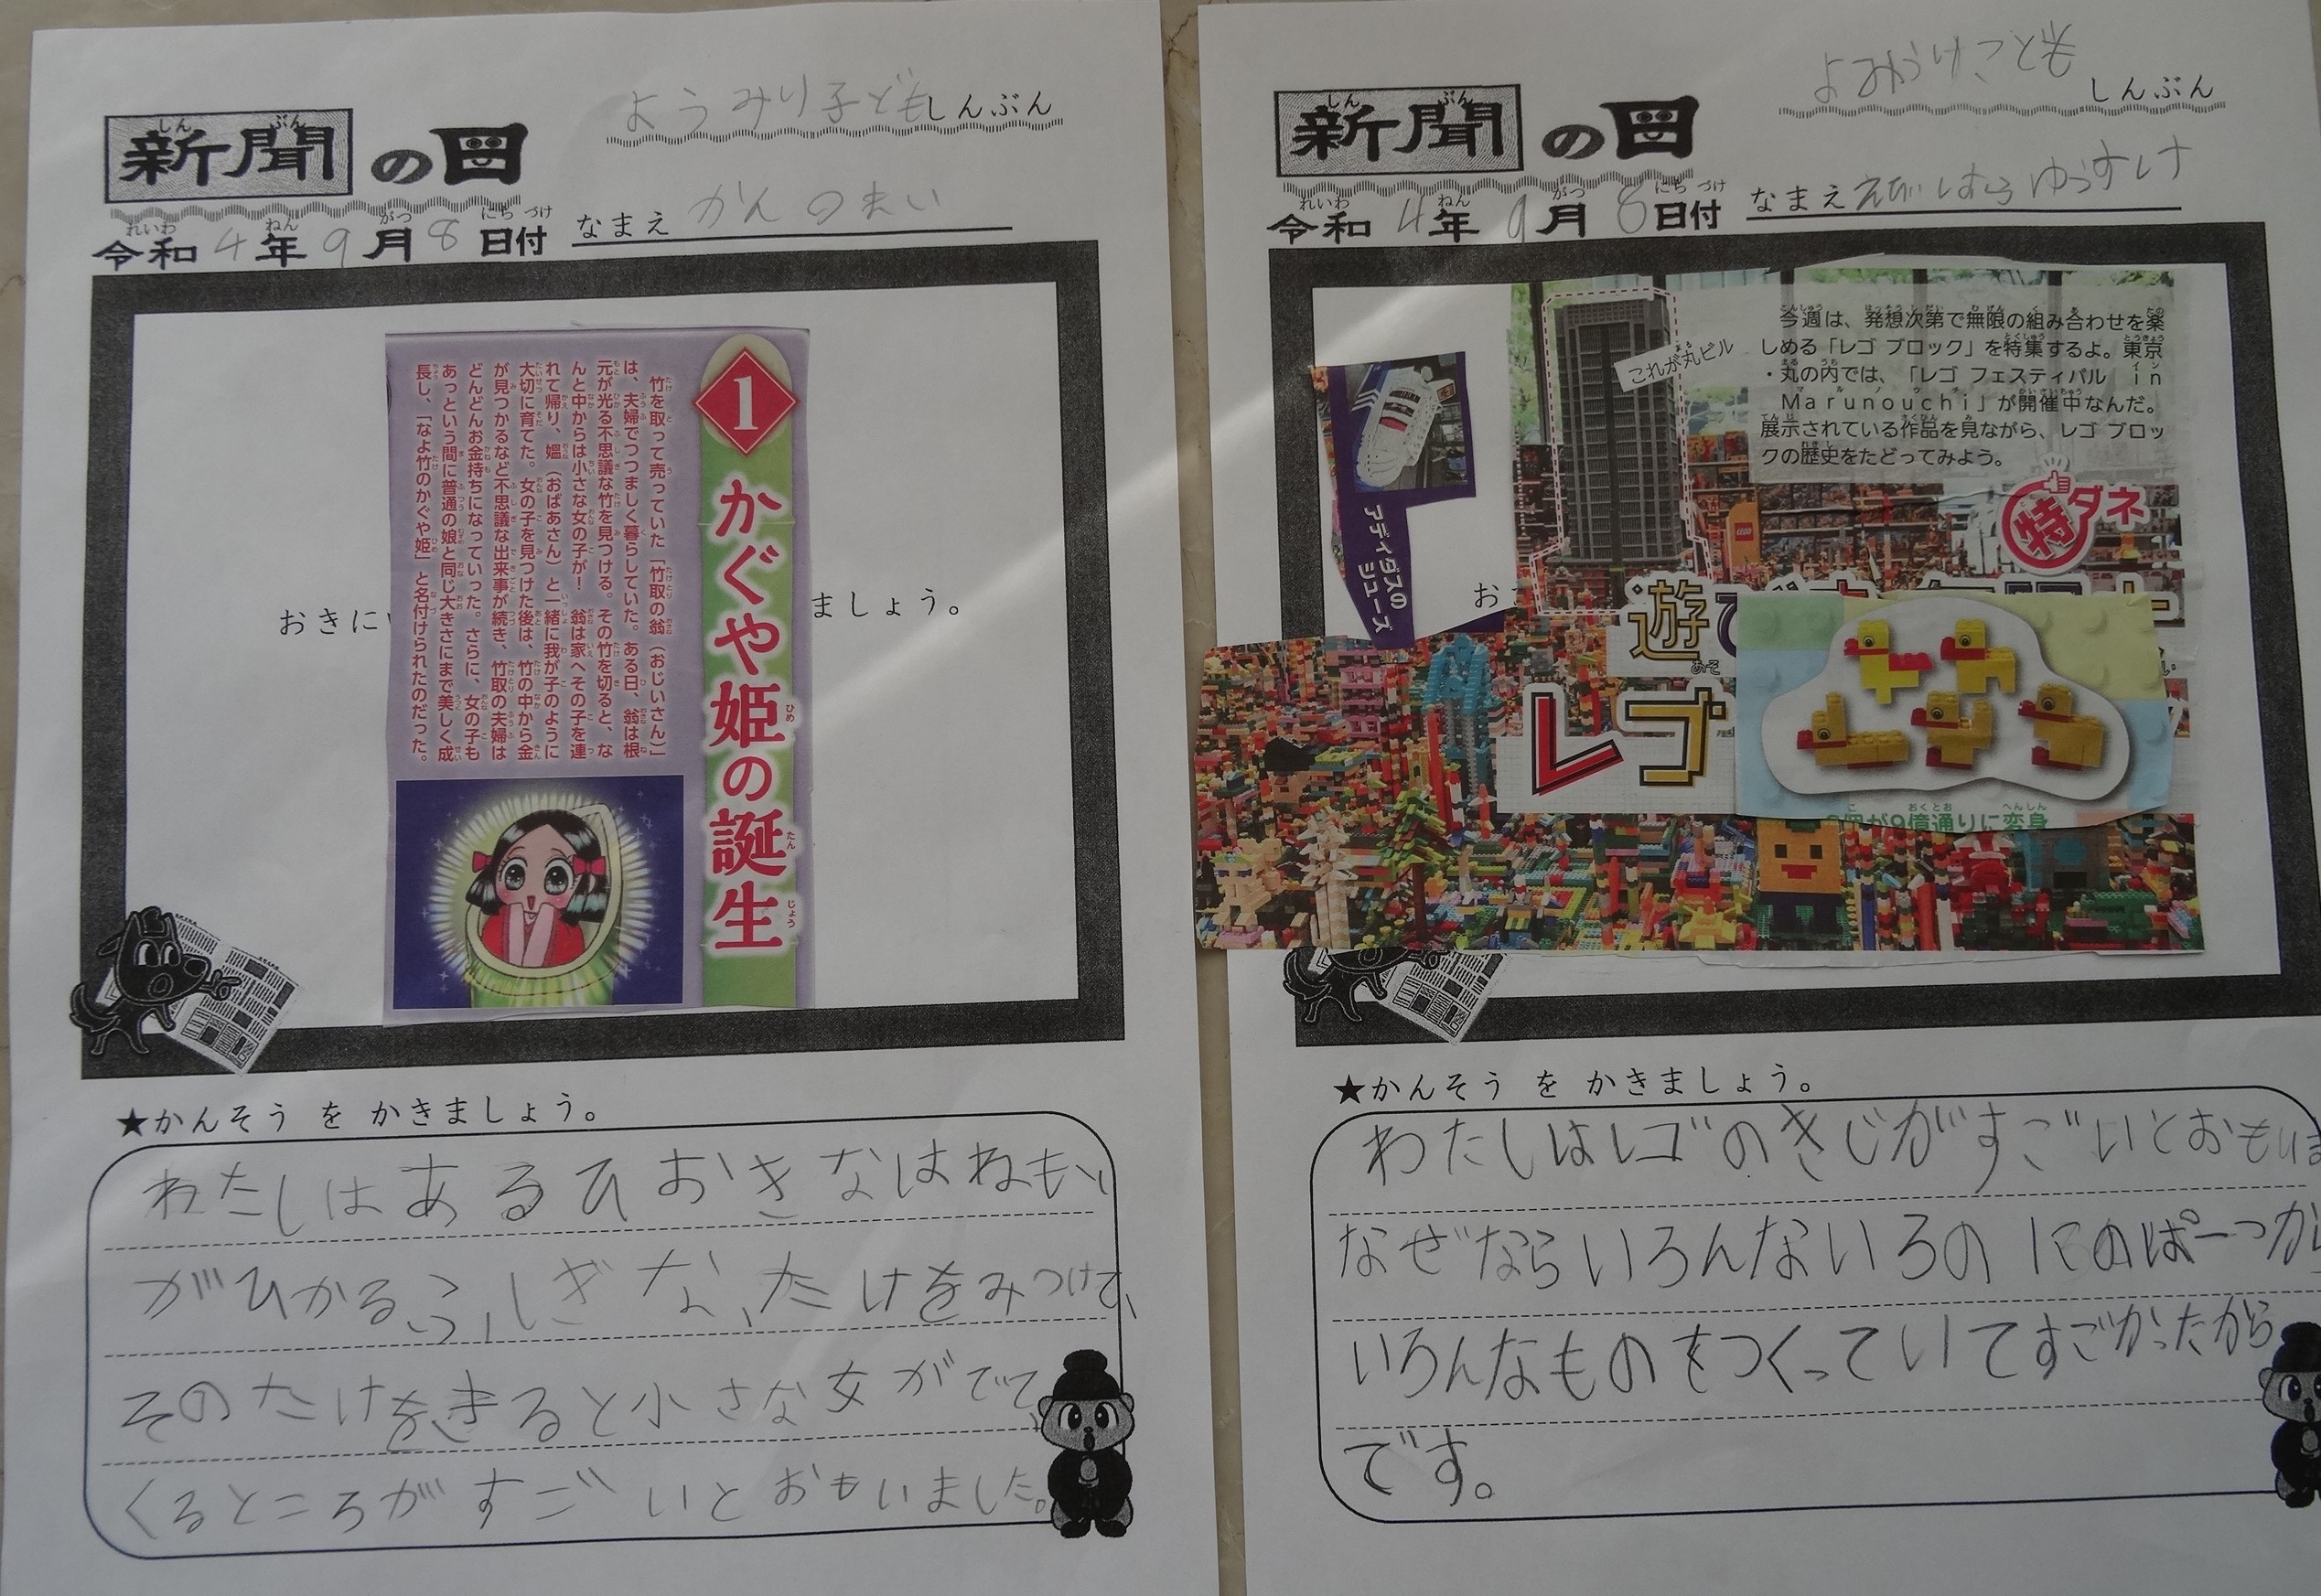 ようみり子どもしんぶん
新聞の日
令和4年9月8日付
なまえ かんのまい
1 かぐや姫の誕生
竹を取って売っていた「竹取の翁(おじいさん)」
は、夫婦でつつましく暮らしていた。ある日、翁は根
元が光る不思議な竹を見つける。その竹を切ると、な
んと中からは小さな女の子が! 翁は家へその子を連
れて帰り、媼(おばあさん)と一緒に我が子のように
大切に育てた。女の子を見つけた後は、竹の中から金
が見つかるなど不思議な出来事が続き、竹取の夫婦は
どんどんお金持ちになっていった。さらに、女の子も
あっという間に普通の娘と同じ大きさにまで美しく成
長し、「なよ竹のかぐや姫」と名付けられたのだった。
おきに
ましょう。
★かんそう を かきましょう。
わたしはあるひおきなはねもと
がひかるふしぎな、たけをみつけて、
そのたけをきると小さな女がでて
くるところがすごいとおもいました。
こども
しんぶん
新聞の日
令和4年9月8日付
なまえ えびはらゆうすけ
今週は、発想次第で無限の組み合わせを楽
しめる「レゴ ブロック」を特集するよ。東京
・丸の内では、「レゴ フェスティバル in
Marunouchi」が開催中なんだ。
展示されている作品を見ながら、レゴ ブロッ
クの歴史をたどってみよう。
これが丸ビル
特ダネ
LEGO
アディダスの
シューズ
お
遊
レゴ
9億通りに変身
★かんそう を かきましょう。
わたしはレゴのきじがすごいとおもいま
なぜならいろんないろのにのぱーつから
いろんなものをつくっていてすごかったから
です。